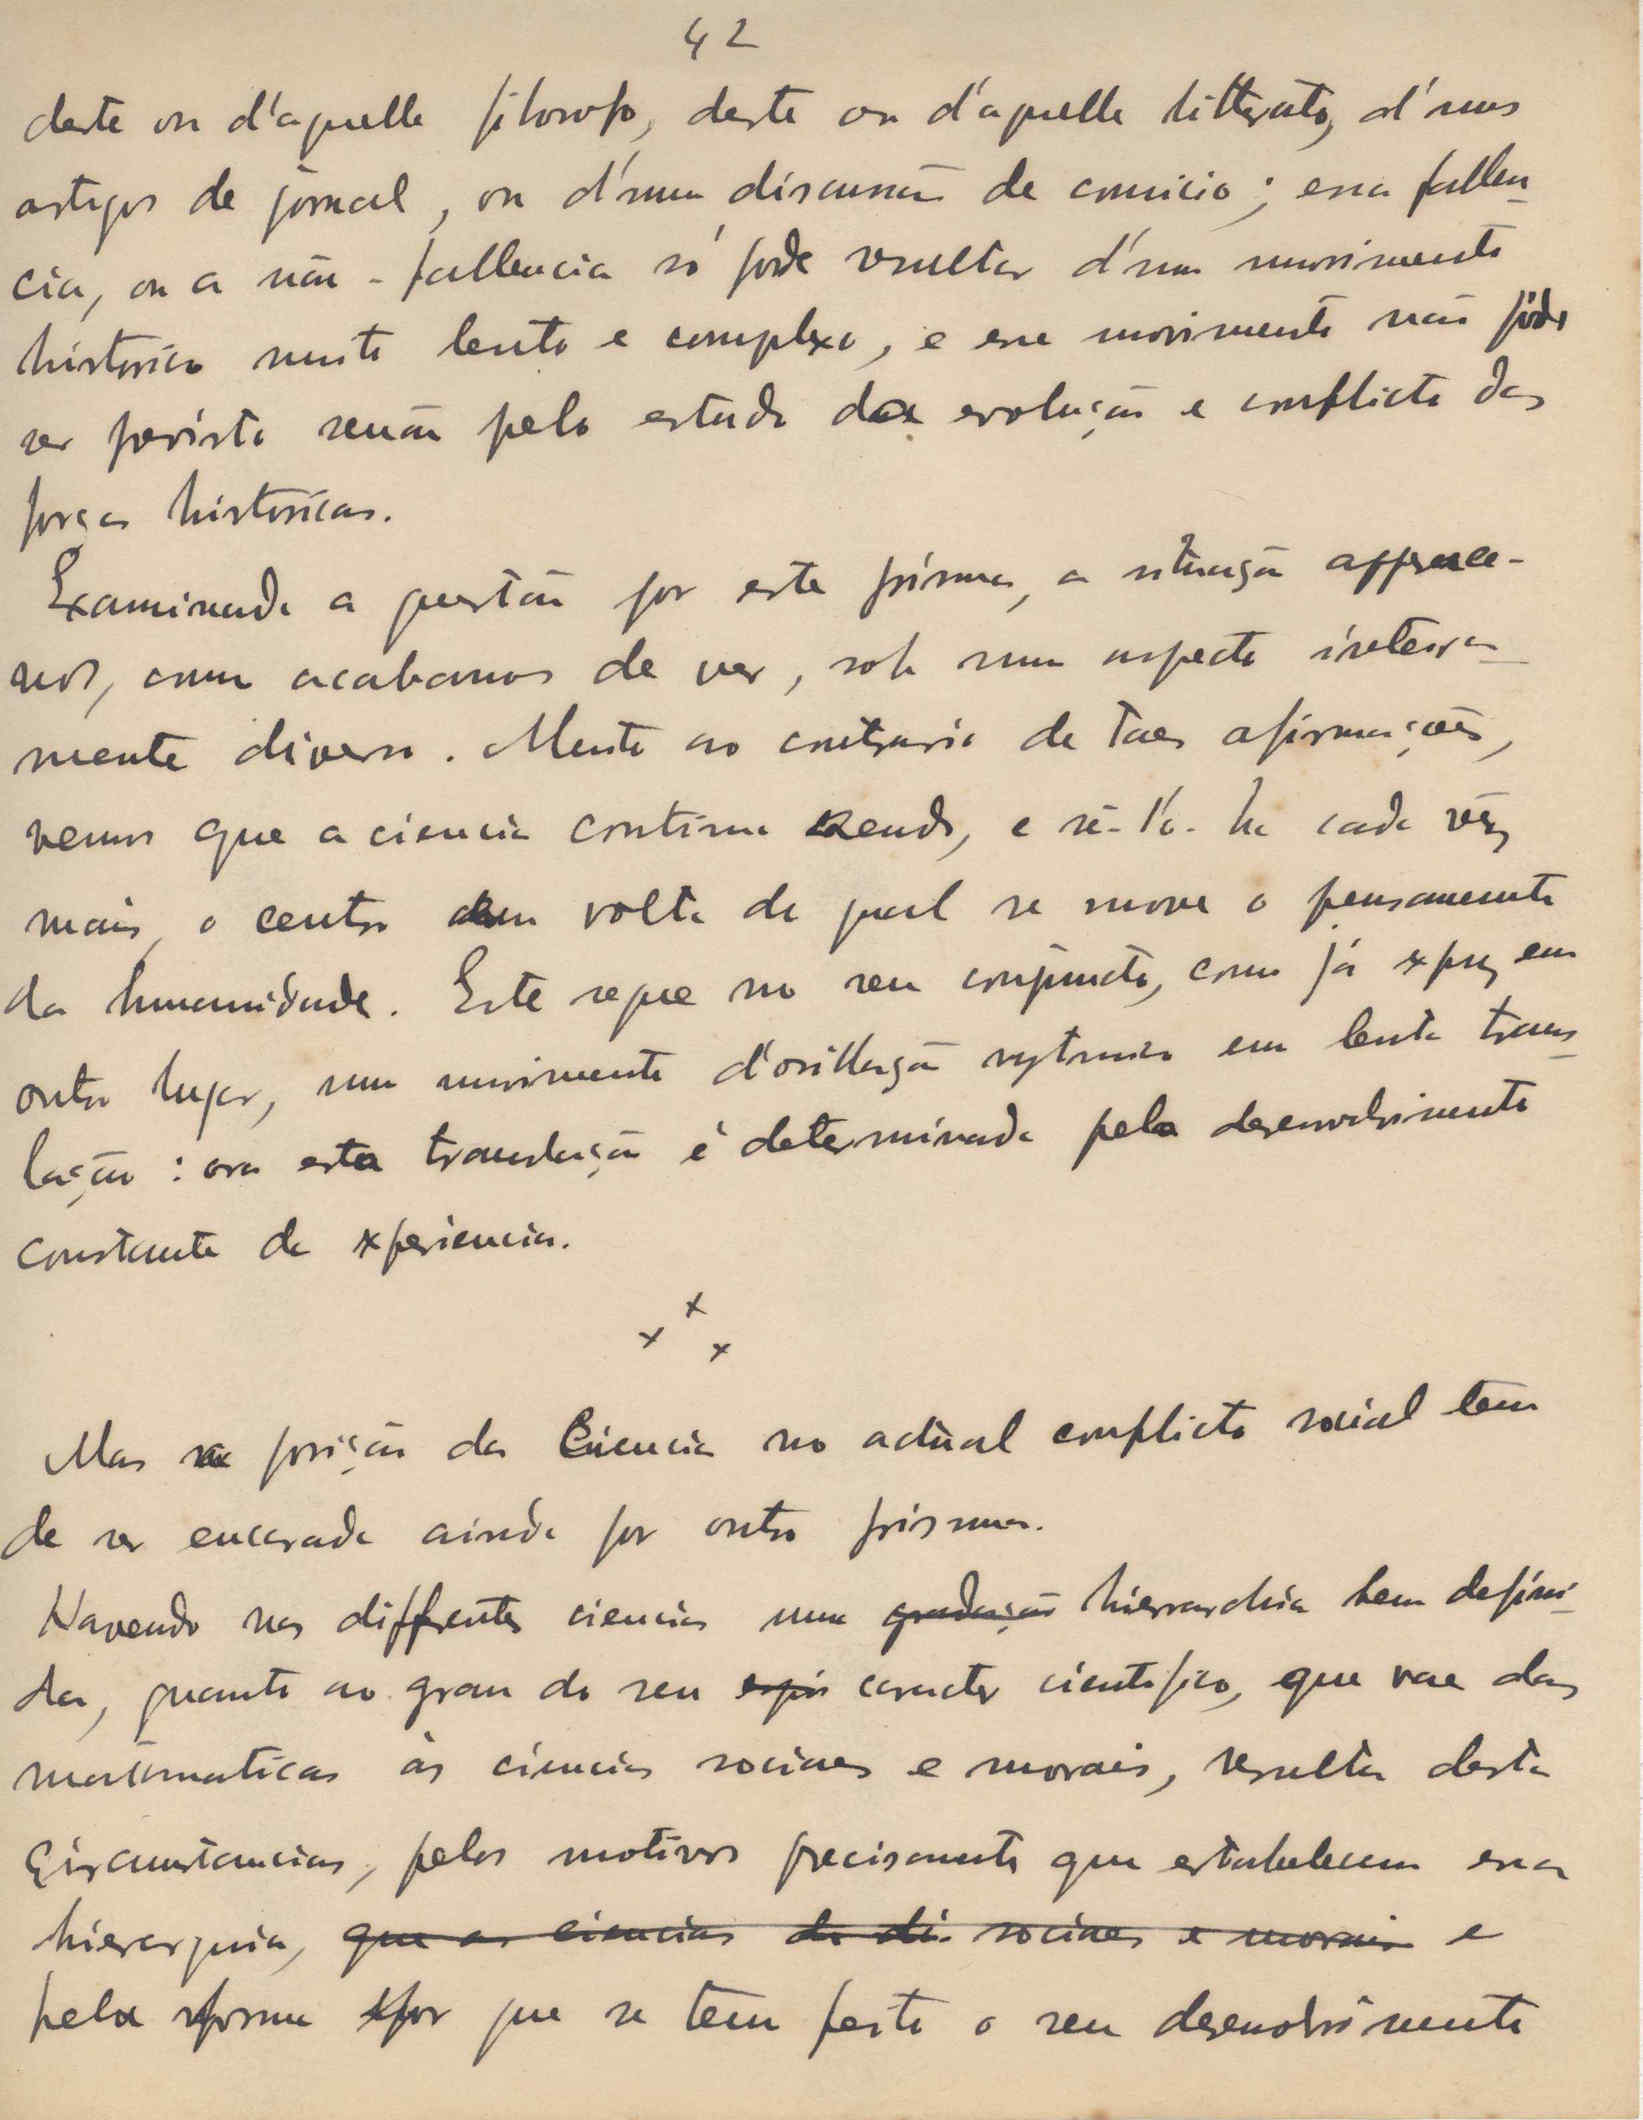 42
deste ou d'aquelle filosofo, deste ou d'aquelle litterato, d'uns
artigos de jornal, ou d'uma discussão de comicio; essa fallen-
cia, ou a não-fallencia só pode resultar d'um movimento
historico muito lento e complexo, e esse movimento não póde
ser previsto senão pelo estudo da evolução e conflicto das
forças historicas.
Examinada a questão por este prisma, a situação apparece-
nos, como acabamos de ver, sob um aspecto inteira-
mente diverso. Muito ao contrario de taes afirmações,
vemos que a ciencia continua sendo, e sê-l'o-ha cada vêz
mais, o centro em volta do qual se move o pensamento
da humanidade. Este segue no seu conjuncto, como já expuz em
outro lugar, um movimento d'oscillação rytmica em lenta trans-
lação: ora esta translação é determinada pelo desenvolvimento
constante da experiencia.
x x x
Mas a posição da Ciencia no actual conflicto social tem
de ser encarada ainda por outro prisma.
Havendo nas differentes ciencias uma gradação hierarchia bem defini-
da, quanto ao grau do seu caracter cientifico, que vae das
matematicas ás ciencias sociaes e moraes, resulta desta
circunstancias, pelos motivos precisamente que estabelecem essa
hierarquia, que as ciencias da di. sociaes e moraes e
pela forma por que se tem feito o seu desenvolvimento